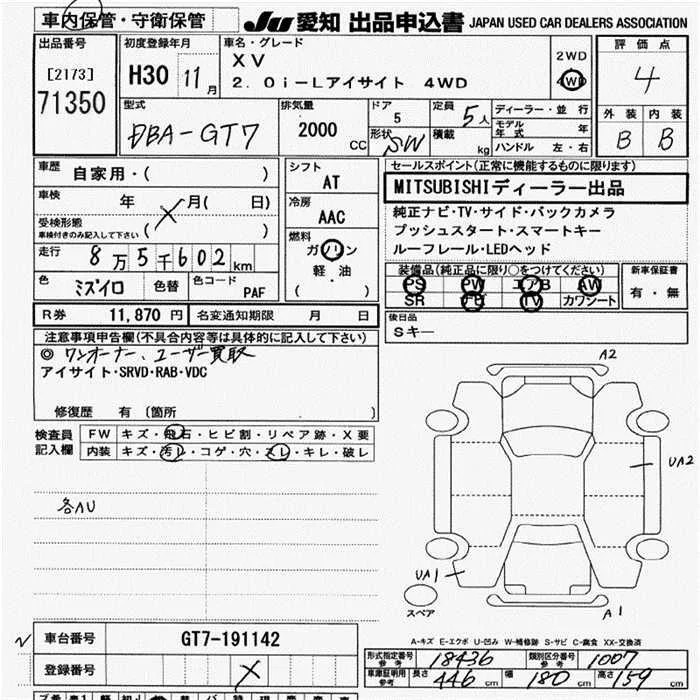 車内保管・守衛保管 JU 愛知 出品申込書 JAPAN USED CAR DEALERS ASSOCIATION
出品番号 初度登録年月 車名・グレード 評価点
[2173] H30 11月 XV 2WD 4
71350 2.0i-Lアイサイト 4WD 4WD
外装 内装
型式 排気量 ドア 定員 ディーラー・並行 B B
DBA-GT7 2000CC 5 5人 モデル年式 年
形状 SW 積載 kg ハンドル 左・右
車歴 自家用・( ) シフト AT セールスポイント(正常に機能するものに限ります)
車検 年 月( 日) 冷房 AAC MITSUBISHIディーラー出品
受検形態 純正ナビ・TV・サイド・バックカメラ
車検付きのみ記入して下さい ( ) プッシュスタート・スマートキー
走行 8万5千602km 燃料 ガソリン ルーフレール・LEDヘッド
軽・油
( )
色 ミズイロ 色替 色コード PAF 装備品(純正品に限り○をつけてください) 新車保証書
PS PW エアB AW 有・無
SR ナビ TV カワシート
R券 11,870 円 名変通知期限 月 日 後日品
Sキー
注意事項申告欄(不具合内容等は具体的に記入して下さい)
◎ ワンオーナー、ユーザー買取
アイサイト・SRVD・RAB・VDC
修復歴 有 〔箇所 〕
検査員 FW キズ・飛石・ヒビ割・リペア跡・X要
記入欄 内装 キズ・汚レ・コゲ・穴・スレ・キレ・破レ
A2
UA2
各AU
UA1
スペア
A1
A-キズ E-エクボ U-凹み W-補修跡 S-サビ C-腐食 XX-交換済
車台番号 GT7-191142
登録番号
形式指定番号 参考 18436 類別区分番号 参考 1007
車庫証明用 参考 長さ 446 cm 幅 180 cm 高さ 159 cm